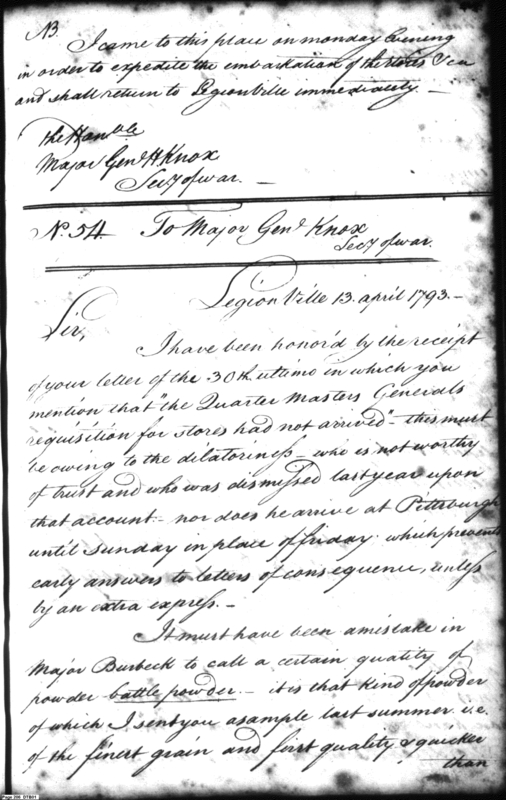 NB.
I came to this place on monday Evening
in order to expedite the embarkation of the stores &ca
and shall return to Legionville immediately. —
the Honble
Major Genl H Knox
Secy of war. —
No. 54. To Major Genl Knox
Secy of war.
Legion Ville 13. april 1793. —
Sir,
I have been honor'd by the receipt
of your letter of the 30th ultimo in which you
mention that "the Quarter Masters Generals
requisition for stores had not arrived" - this must
be owing to the dilatoriness — who is not worthy
of trust and who was dismissed last year upon
that account — nor does he arrive at Pittsburgh
until Sunday in place of friday. which prevents
early answers to letters of consequence, unless
by an extra express. —
It must have been a mistake in
Major Burbeck to call a certain quality of
powder battle powder. — it is that kind of powder
of which I sent you a sample last summer i.e.
of the finest grain and first quality & quicker
than
Page 206 DTB01